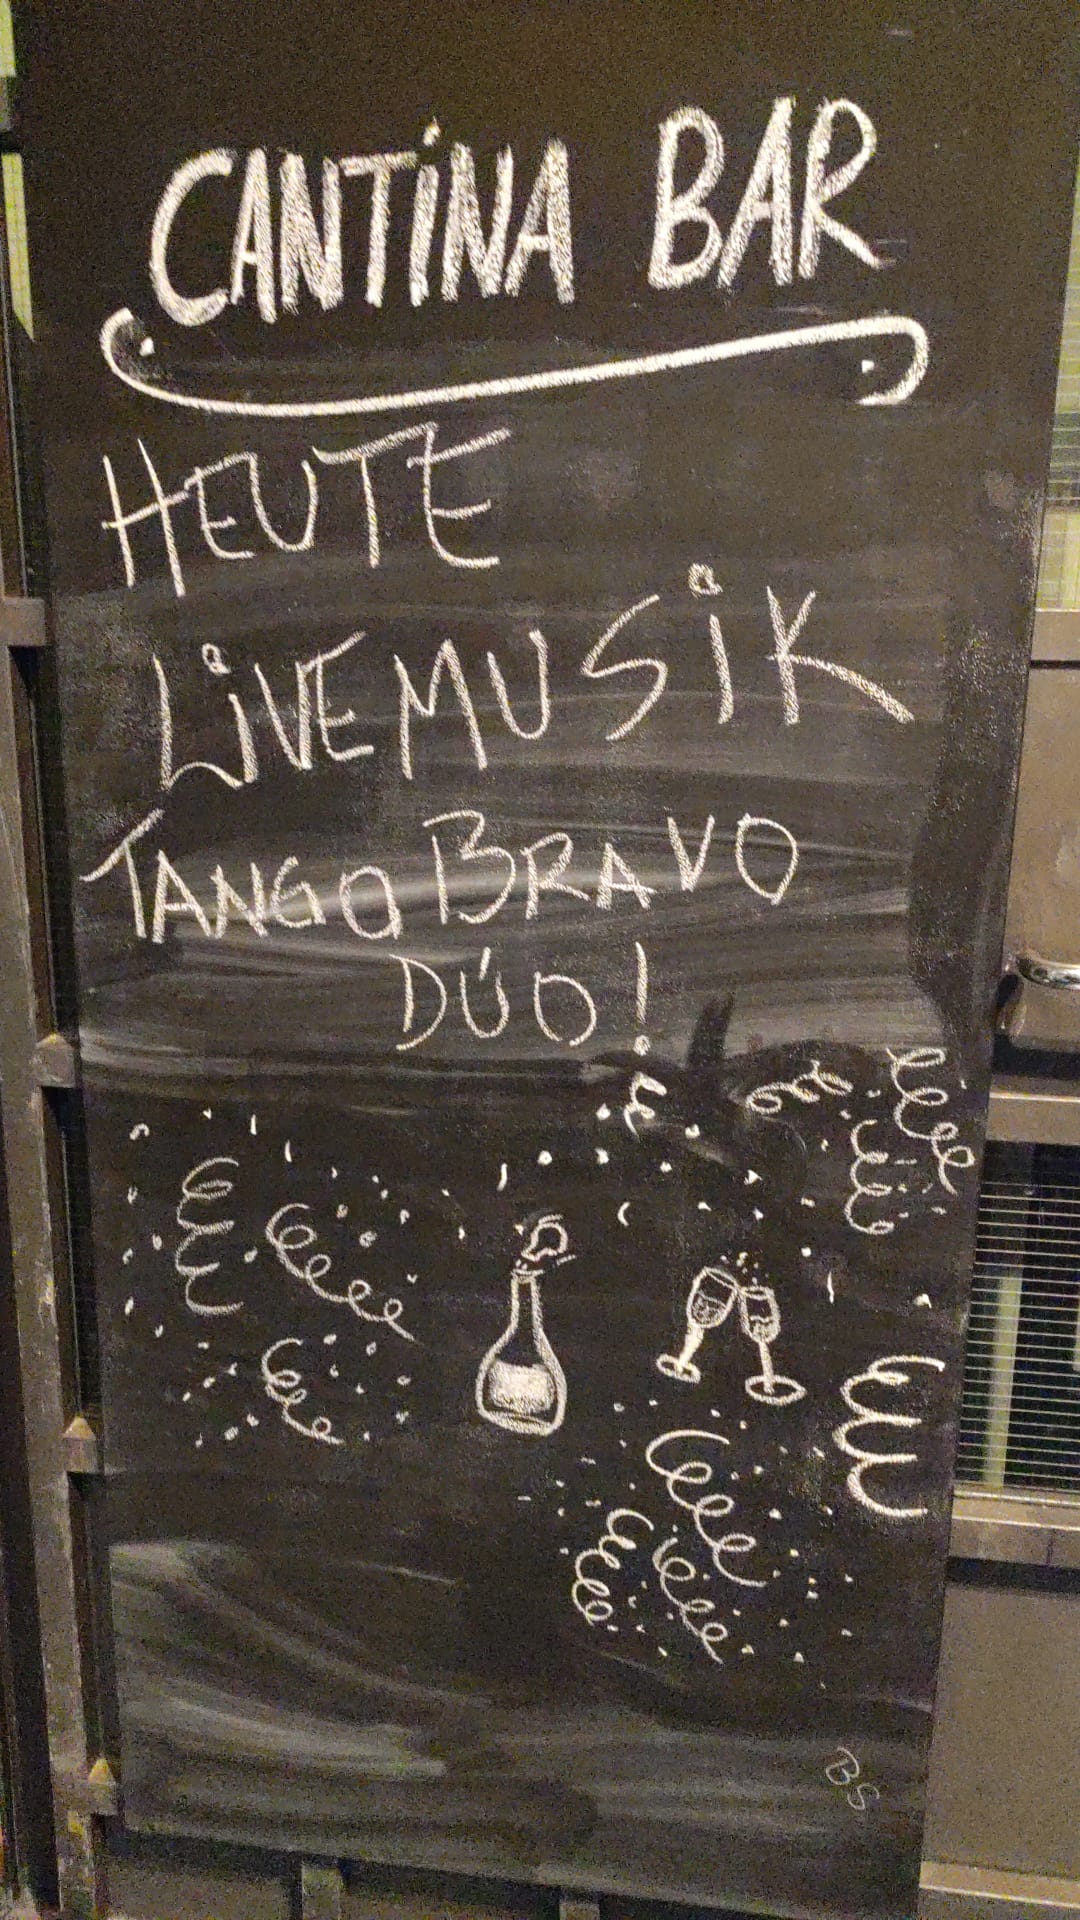 CANTiNA BAR
HEUTE
LiVEMUSiK
TANGO BRAVO
DÚO!
BS